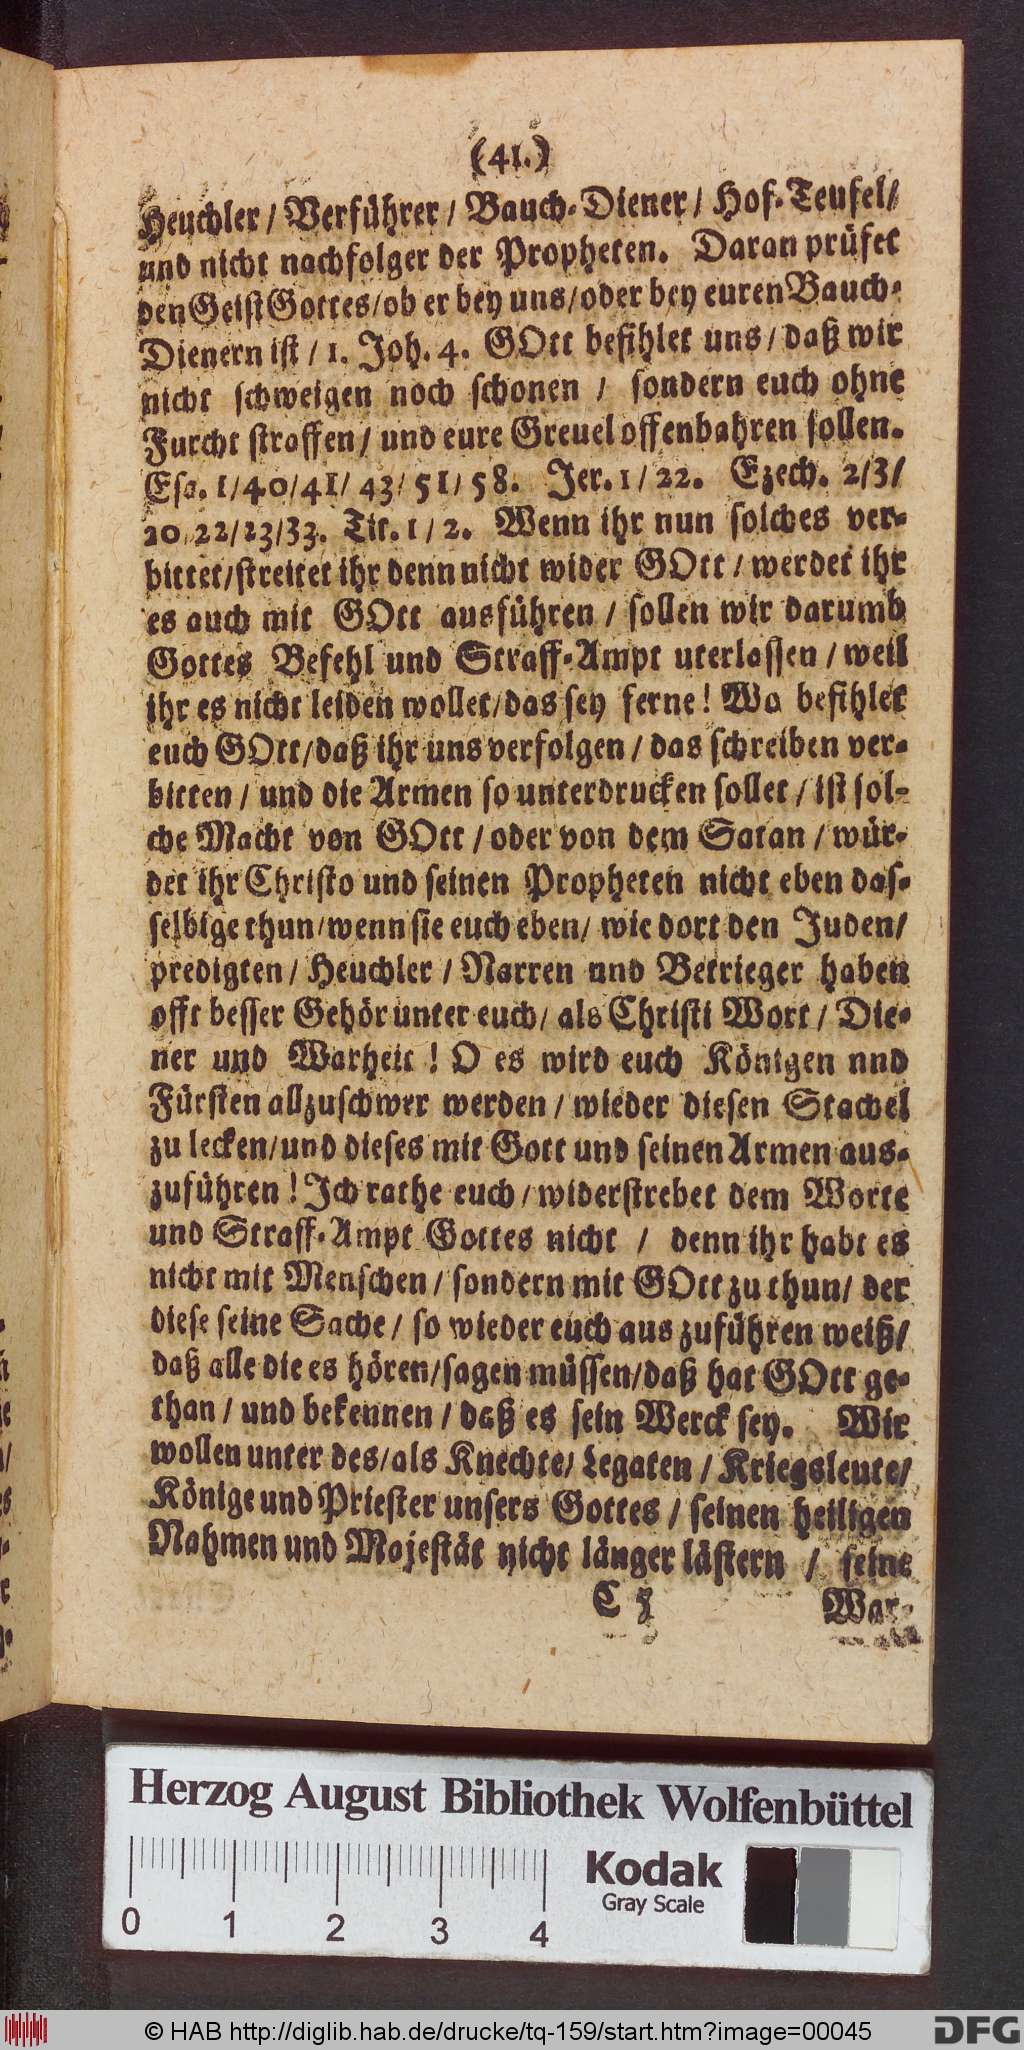 (41.)
Heuchler / Verführer / Bauch-Diener / Hof-Teufel/
und nicht nachfolger der Propheten. Daran prüfet
den Geist Gottes/ob er bey uns/oder bey euren Bauch-
Dienern ist / 1. Joh. 4. GOtt befihlet uns / daß wir
nicht schweigen noch schonen / sondern euch ohne
Furcht straffen / und eure Greuel offenbahren sollen.
Esa. 1/40/41/ 43/ 51/ 58. Jer. 1 / 22. Ezech. 2/3/
20, 22/23/33. Tit. 1 / 2. Wenn ihr nun solches ver-
bittet/streitet ihr denn nicht wider GOtt / werdet ihr
es auch mit GOtt ausführen / sollen wir darumb
Gottes Befehl und Straff-Ampt uterlassen / weil
ihr es nicht leiden wollet/das sey ferne! Wa befihlet
euch GOtt/daß ihr uns verfolgen / das schreiben ver-
bitten / und die Armen so unterdrucken sollet / ist sol-
che Macht von GOtt / oder von dem Satan / wür-
det ihr Christo und seinen Propheten nicht eben das-
selbige thun/wenn sie euch eben/ wie dort den Juden/
predigten / Heuchler / Narren nnd Betrieger haben
offt besser Gehör unter euch/ als Christi Wort / Die-
ner und Warheit ! O es wird euch Königen nnd
Fürsten allzuschwer werden / wieder diesen Stachel
zu lecken/und dieses mit Gott und seinen Armen aus-
zuführen ! Ich rathe euch / widerstrebet dem Worte
und Straff-Ampt Gottes nicht / denn ihr habt es
nicht mit Menschen / sondern mit GOtt zu thun/ der
diese seine Sache / so wieder euch aus zuführen weiß/
daß alle die es hören/sagen müssen/daß hat GOtt ge-
than / und bekennen / daß es sein Werck sey. Wir
wollen unter des/als Knechte/ Legaten / Kriegsleute/
Könige und Priester unsers Gottes / seinen heiligen
Nahmen und Majestät nicht länger lästern / seine
C 5 War-
Herzog August Bibliothek Wolfenbüttel
Kodak
Gray Scale
0 1 2 3 4
© HAB http://diglib.hab.de/drucke/tq-159/start.htm?image=00045
DFG